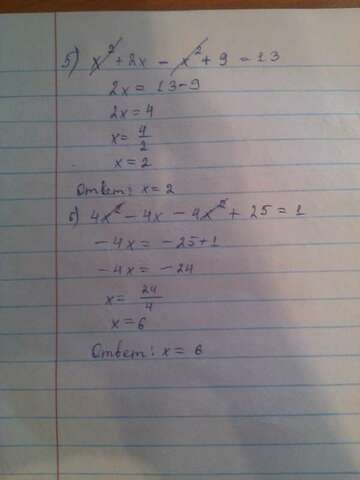 5) x² + 2x - x² + 9 = 13
2x = 13-9
2x = 4
x = 4/2
x = 2
Ответ: x = 2
6) 4x² - 4x - 4x² + 25 = 1
-4x = -25+1
-4x = -24
x = 24/4
x = 6
Ответ: x = 6